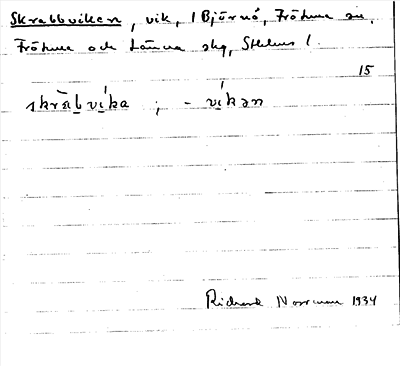 Skrabbviken, vik, i Björnö, Frötuna sn,
Frötuna och Länna skg, Sthlms l.
15
skràbvika ; - víkan
Richard Norrman 1934